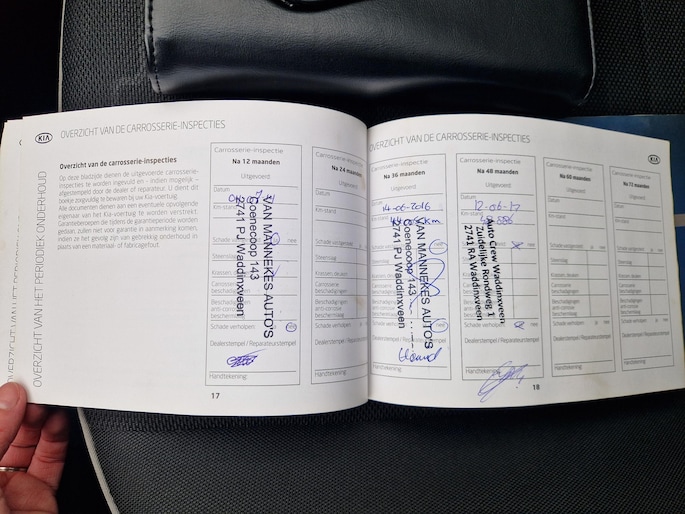 KIA
OVERZICHT VAN DE CARROSSERIE-INSPECTIES
OVERZICHT VAN HET PERIODIEK ONDERHOUD
Overzicht van de carrosserie-inspecties
Op deze bladzijde dienen de uitgevoerde carrosserie-
inspecties te worden ingevuld en - indien mogelijk -
afgestempeld door de dealer of reparateur. U dient dit
boekje zorgvuldig te bewaren bij uw Kia-voertuig.
Alle documenten dienen aan een eventuele opvolgende
eigenaar van het Kia-voertuig te worden verstrekt.
Garantiereparaties tijdens de garantieperiode worden
gedaan, zullen niet voor garantie in aanmerking komen,
indien ze het gevolg zijn van gebrekkig onderhoud in
plaats van een materiaal- of fabricagefout.
Carrosserie-inspectie
Na 12 maanden
Uitgevoerd:
Datum
Km-stand
Schade vastgesteld nee
Steenslag
Krassen, deuken
Carrosserie
beschadigingen
Beschadigingen
anti-corrosie
beschermlaag
Schade verholpen nee
Dealerstempel / Reparateurstempel
Handtekening:
VAN MANNEKES AUTO'S
Coenecoop 143
2741 PJ Waddinxveen
17
Carrosserie-inspectie
Na 24 maanden
Uitgevoerd:
Datum
Km-stand
Schade vastgesteld
Steenslag
Krassen, deuken
Carrosserie
beschadigingen
Beschadigingen
anti-corrosie
beschermlaag
Schade verholpen
Dealerstempel
Handtekening:
OVERZICHT VAN DE CARROSSERIE-INSPECTIES
KIA
Carrosserie-inspectie
Na 36 maanden
Uitgevoerd:
Datum
14-06-2016
Km-stand
Schade vastgesteld nee
Steenslag
Krassen, deuken
Carrosserie
Beschadigingen
anti-corrosie
beschermlaag
Schade verholpen nee
Dealerstempel / Reparateurstempel
Handtekening:
VAN MANNEKES AUTO'S
Coenecoop 143
2741 PJ Waddinxveen
Carrosserie-inspectie
Na 48 maanden
Uitgevoerd:
Datum
12-06-17
Km-stand
Schade vastgesteld
Steenslag
Krassen, deuken
Carrosserie
Beschadigingen
anti-corrosie
beschermlaag
Schade verholpen
Dealerstempel / Reparateurstempel
Handtekening:
Auto Crew Waddinxveen
Zuidelijke Rondweg 1
2741 RA Waddinxveen
18
Carrosserie-inspectie
Na 60 maanden
Uitgevoerd:
Datum
Km-stand
Schade vastgesteld ja nee
Steenslag
Krassen, deuken
Carrosserie
beschadigingen
Beschadigingen
anti-corrosie
beschermlaag
Schade verholpen ja nee
Dealerstempel / Reparateurstempel
Handtekening:
Carrosserie-inspectie
Na 72 maanden
Uitgevoerd:
Datum
Km-stand
Schade vastgesteld ja nee
Steenslag
Krassen, deuken
Carrosserie
beschadigingen
Beschadigingen
anti-corrosie
beschermlaag
Schade verholpen ja nee
Dealerstempel / Reparateurstempel
Handtekening: